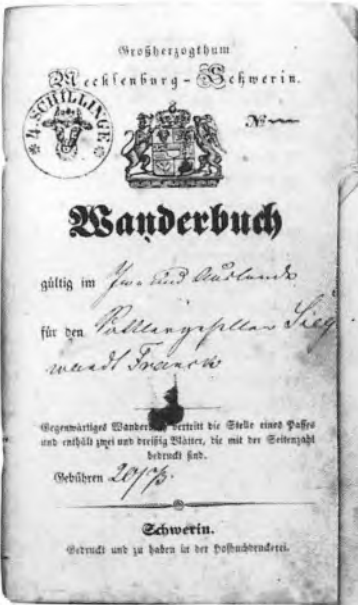 Großherzogthum
Mecklenburg-Schwerin.
4. SCHILLINGE
No
Wanderbuch
gültig im In- und Auslande
für den Sattlergesellen Sieg
wardt Franck
Gegenwärtiges Wanderbuch vertritt die Stelle eines Passes
und enthält zwei und dreißig Blätter, die mit der Seitenzahl
bedruckt sind.
Gebühren 20
Schwerin.
Gedruckt und zu haben in der Hofbuchdruckerei.